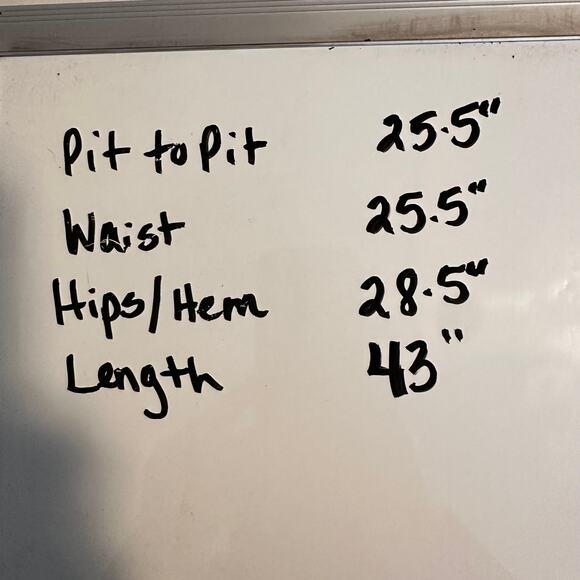 Pit to Pit 25.5"
Waist 25.5"
Hips/Hem 28.5"
Length 43"